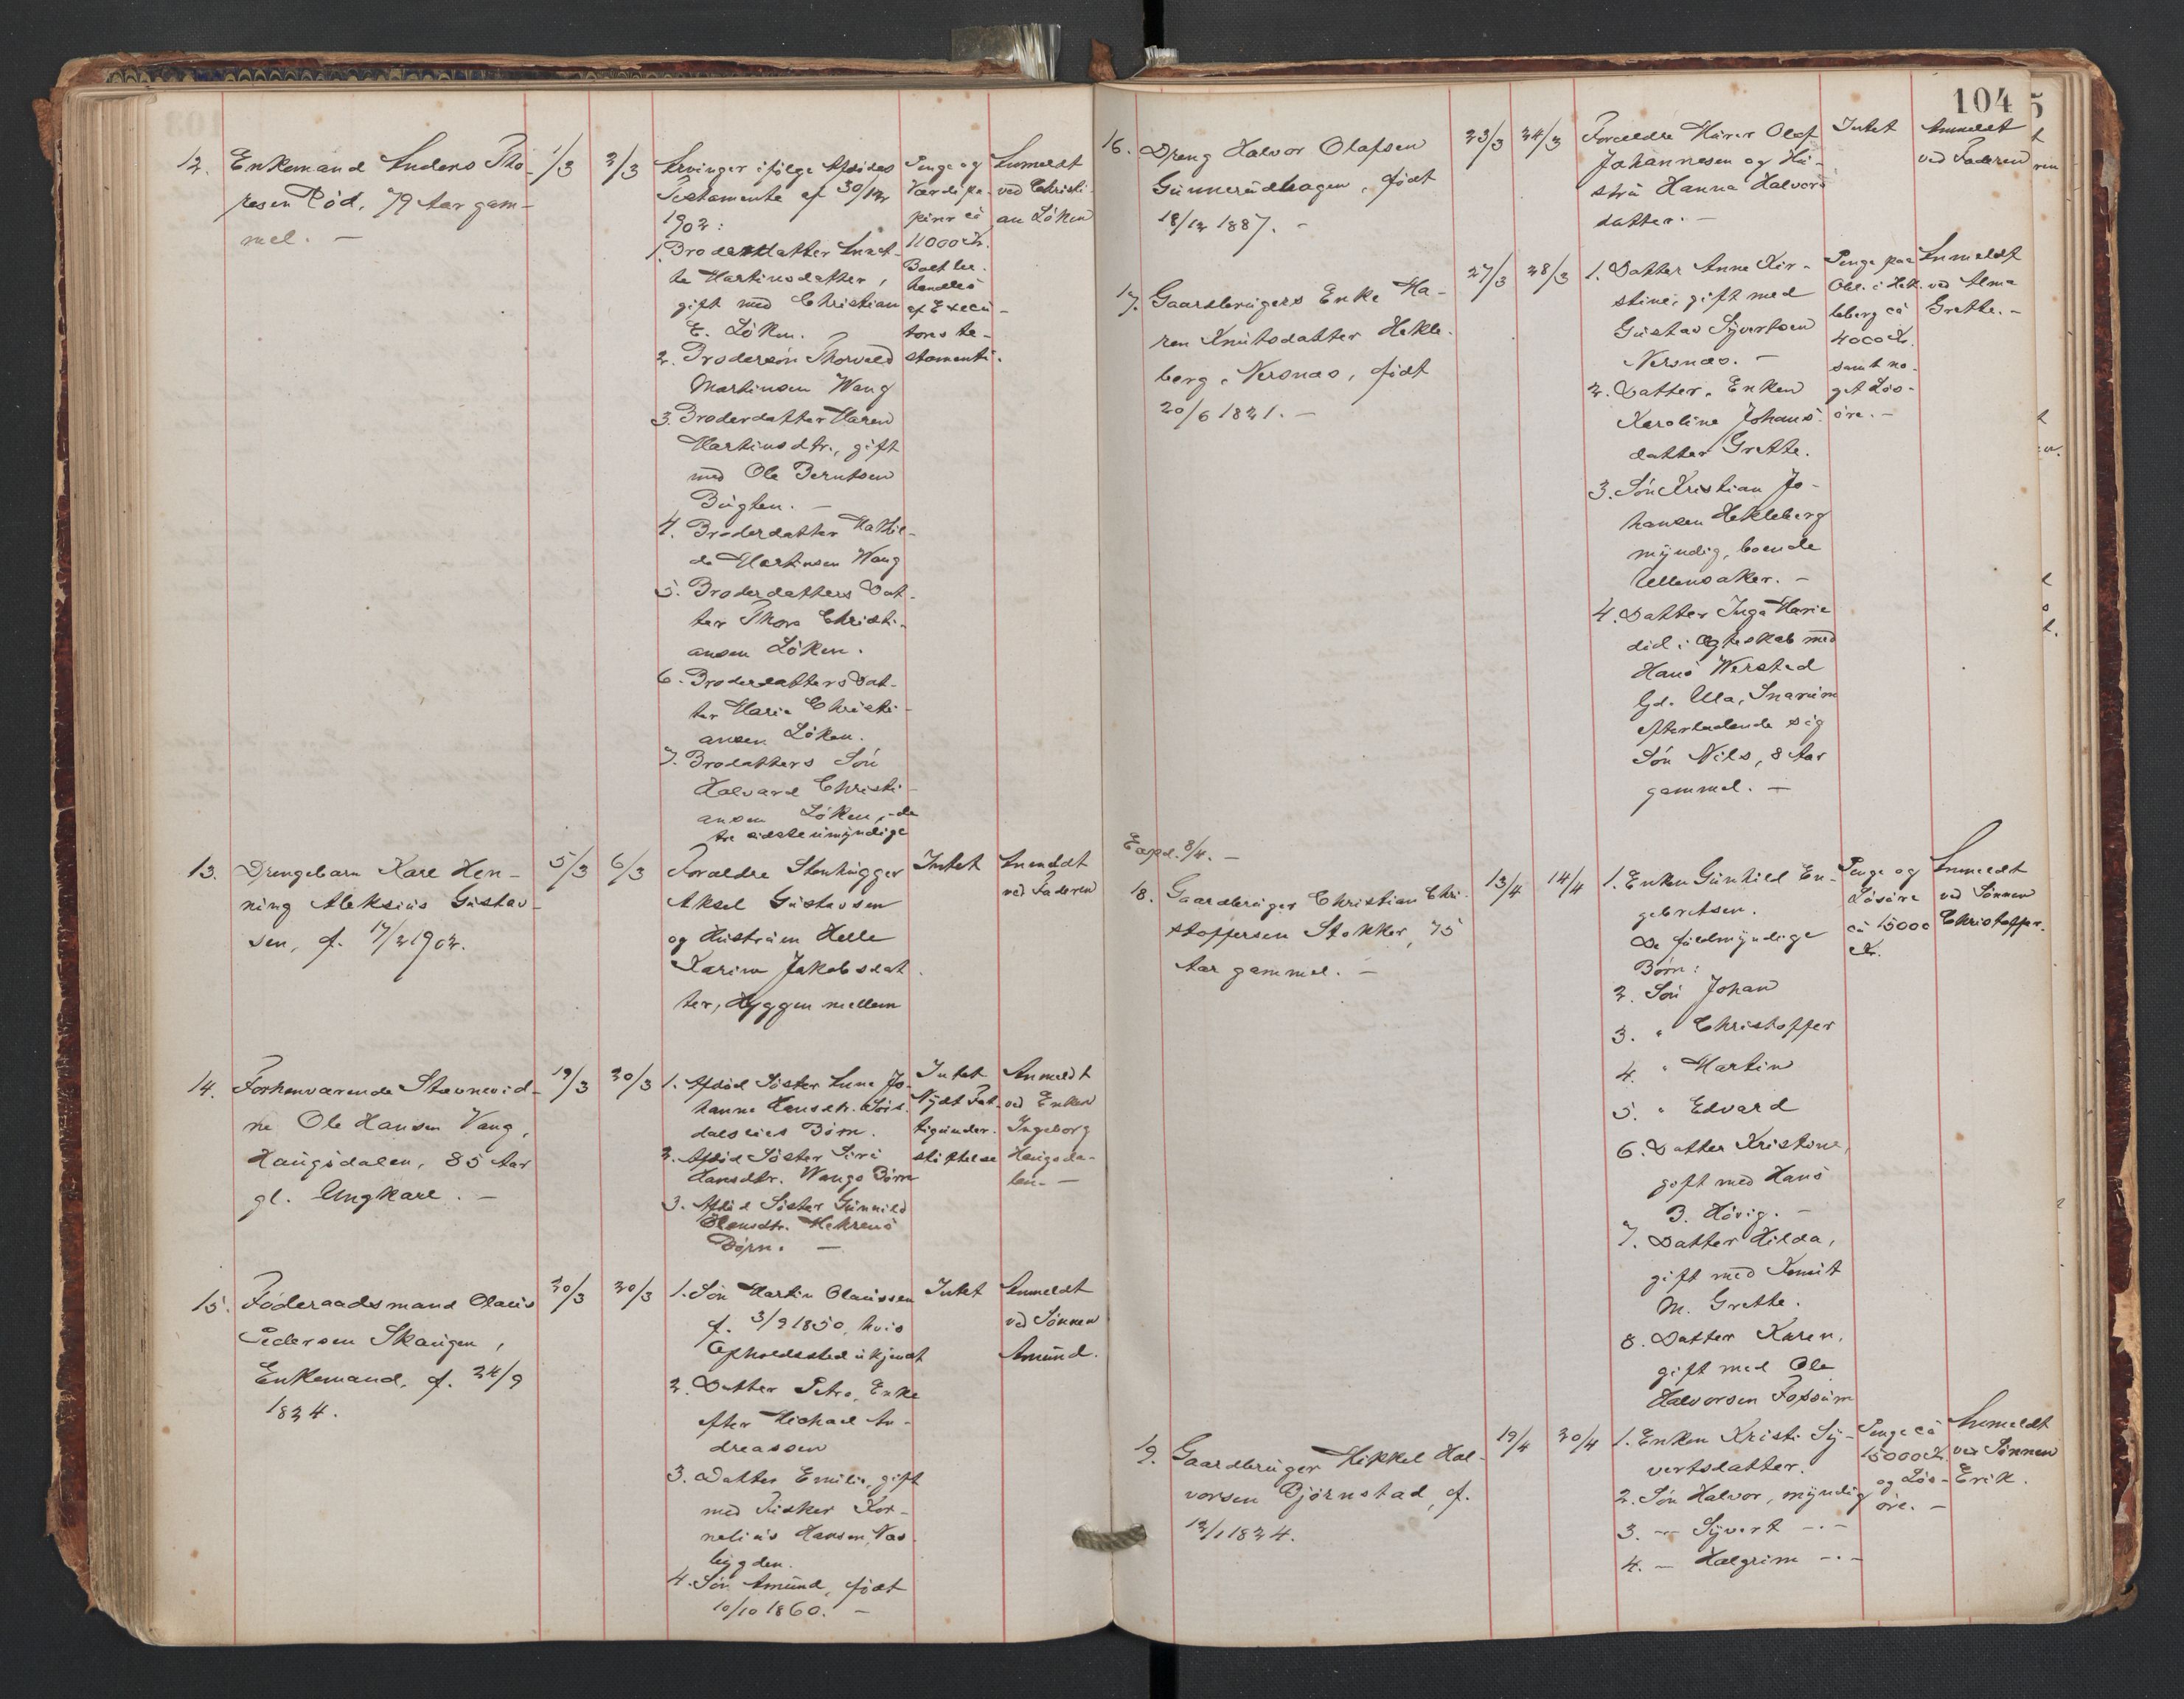 12. Enkemand Anders Tho-
resen Röd, 79 Aar gam-
mel. —
1/3
2/3
Arvinger ifölge Afdödes
Testamente af 30/12
1902:
1. Broderdatter Anet-
te Martinsdatter,
gift med Christian
E. Löken.
2. Brodersön Thorvald
Martinsen Wang
3. Broderdatter Maren
Martinsdtr., gift
med Ole Berntsen
Bugten. —
4. Broderdatter Mathil-
de Martinsen Wang
5. Broderdatters Dat-
ter Thora Christi-
ansen Löken.
6. Broderdatters Dat-
ter Marie Christi-
ansen Löken.
7. Brodatters Sön
Halvard Christi-
ansen Löken, - de
tre sidste umyndige
Penge og
Værdipa-
pirer ca
11000 Kr.
Boet be-
handles
af Execu-
tores te-
stamenti.
Anmeldt
ved Christi-
an Löken
13. Drengebarn Karl Hen-
ning Aleksius Gustav-
sen, f. 17/2 1902.
5/3
6/3
Forældre Stenhugger
Aksel Gustavsen
og Hustruen Helle
Karine Jakobsdat-
ter, Hyggen mellem
Intet
Anmeldt
ved Faderen
14. Forhenværende Stævnevid-
ne Ole Hansen Vang,
Haugsdalen, 85 Aar
gl. Ungkarl. —
19/3
20/3
1. Afdöd Söster Anne Jo-
hanne Hansdtr.
Börn.
2. Afdöd Söster Siri
Hansdtr. Wangs Börn
3. Afdöd Söster Gunnild
Hansdtr. Mehrens
Börn. —
Intet
Nydt Fat-
tigunder-
stöttelse
Anmeldt
ved Enken
Ingeborg
Haugsda-
len. —
15. Föderaadsmand Olaus
Pedersen Skaugen,
Enkemand, f. 24/9
1824.
20/3
20/3
1. Sön Martin Olaussen
f. 3/9 1850, hvis
Opholdssted ukjendt
2. Datter Petra, Enke
efter Michael An-
dreassen
3. Datter Emilie, gift
med Fisker Kor-
nelius Hansen, Næs-
bygden.
4. Sön Amund, födt
10/10 1860. —
Intet
Anmeldt
ved Sönnen
Amund.
104
16. Dreng Halvor Olafsen
Gunnerudhagen, födt
18/12 1887. —
23/3
24/3
Forældre Murer Olaf
Johannesen og Hu-
stru Hanna Halvors-
datter. —
Intet
Anmeldt
ved Faderen
17. Gaardbrugers Enke Ma-
ren Knutsdatter Hekle-
berg, Nersnæs, födt
20/6 1821. —
27/3
28/3
1. Datter Anne Kir-
stine, gift med
Gustav Syvertsen
Nersnæs. —
2. Datter, Enken
Karoline Johans-
datter Grette.
3. Sön Kristian Jo-
hansen Hekleberg
myndig, boende
Ullensaker. —
4. Datter Inga Marie
död i Ægteskab med
Hans Wersted
Gd. Ula, Snarum
efterladende sig
Sön Nils, 8 Aar
gammel. —
Penge paa
Obl. i Hek-
leberg ca
4000 Kr.
samt no-
get Lös-
öre. —
Anmeldt
ved Alma
Grette. —
Exped. 8/4. —
18. Gaardbruger Christian Chri-
stoffersen Stokker, 75
Aar gammel. —
13/4
14/4
1. Enken Gunhild En-
gebretsen.
De fuldmyndige
Börn:
2. Sön Johan
3. " Christoffer
4. " Martin
5. " Edvard
6. Datter Kristine,
gift med Hans
B. Hövig. —
7. Datter Hilda,
gift med Knut
M. Grette.
8. Datter Karen,
gift med Ole
Halvorsen Fossum
Penge og
Lösöre
ca 15000
Kr.
Anmeldt
ved Sönnen
Christoffer.
19. Gaardbruger Mikkel Hal-
vorsen Björnstad, f.
12/1 1824.
19/4
20/4
1. Enken Kristi Sy-
vertsdatter.
2. Sön Halvor, myndig
3. — Syvert —"—
4. — Halgrim —"—
Penge ca
15000 Kr.
og Lös-
öre. —
Anmeldt
ved Sönnen
Erik.